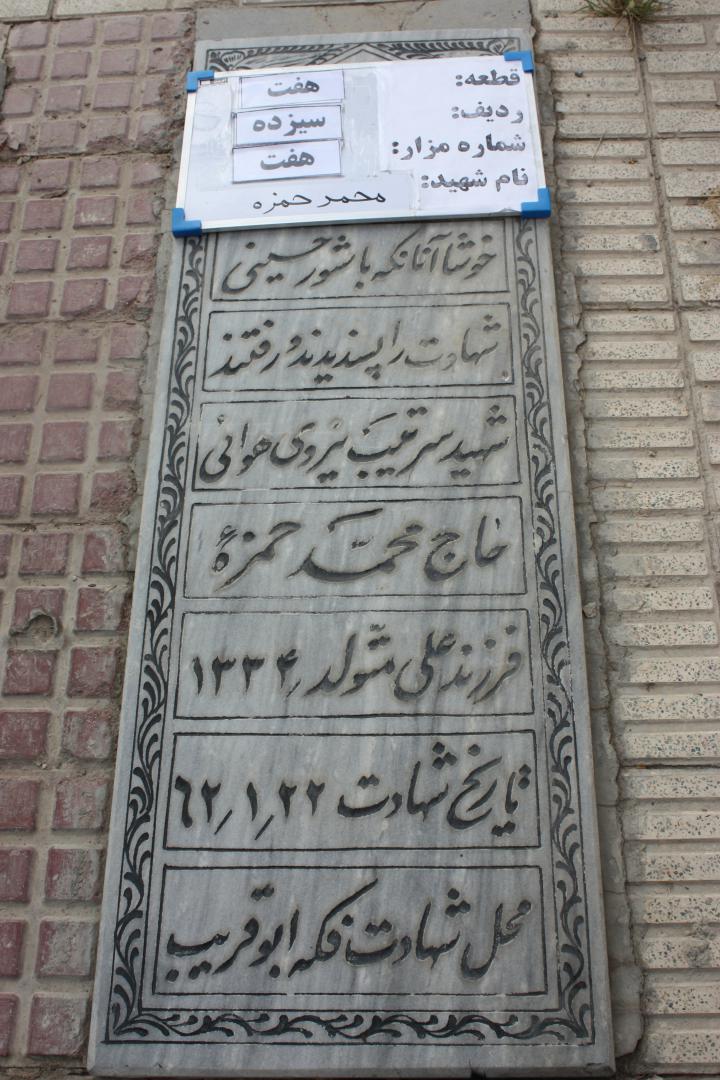 قطعه: هفت
ردیف: سیزده
شماره مزار: هفت
نام شهید: محمد حمزه
خوشا آنانکه با شور حسینی
شهادت را پسندیدند و رفتند
شهید سرتیپ نیروی هوائی
حاج محمد حمزهٔ
فرزند علی متولد ۱۳۳۴
تاریخ شهادت ۶۲٫۱٫۲۲
محل شهادت فکه ابوقریب